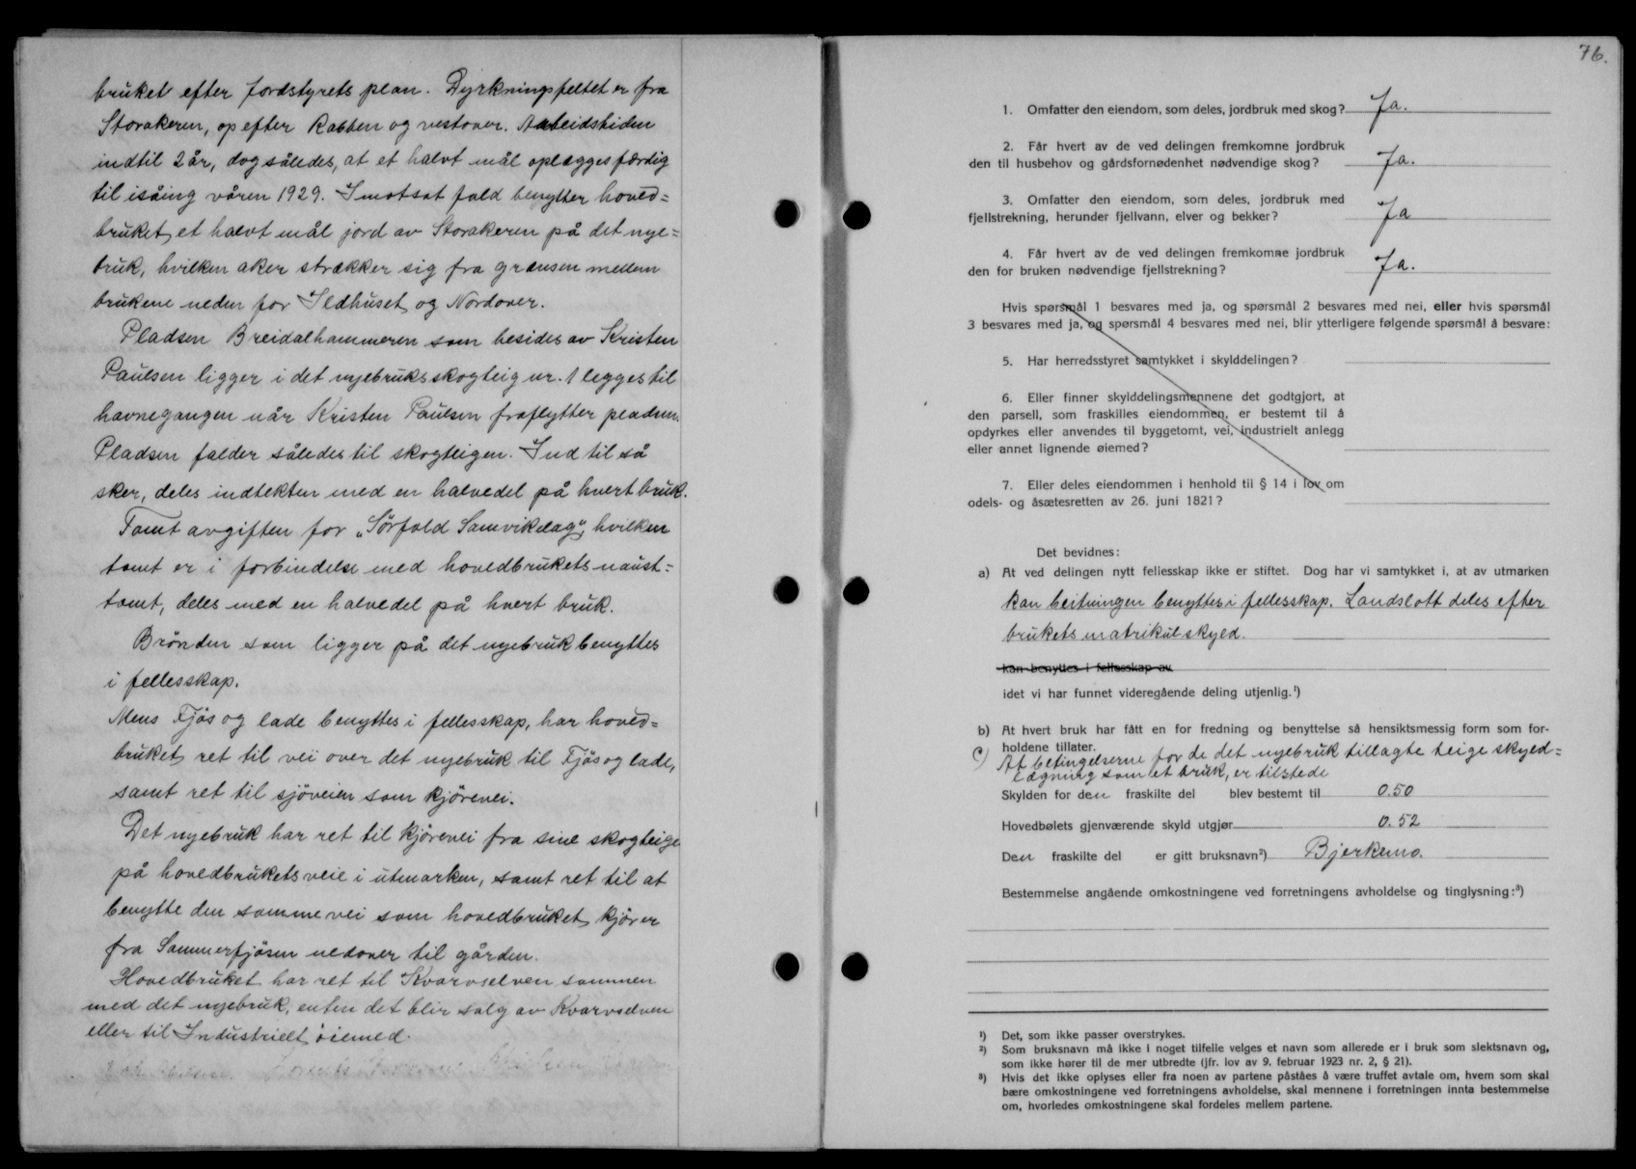 bruket efter Jordstyrets plan. Dyrkningsfeltet er fra
Storakeren, op efter Rabben og vestover. Arbeidstiden
indtil 2 år, dog således, at et halvt mål oplægges færdig
til isåing våren 1929. I motsat fald benytter hoved=
bruket et halvt mål jord av Storakeren på det nye=
bruk, hvilken aker strækker sig fra grænsen mellem
brukene neden for Ildhuset og Nordover.
Pladsen Breidalhammeren som besides av Kristen
Paulsen ligger i det nyebruks skogteig nr. 1 legges til
havnegangen når Kristen Paulsen fraflytter pladsen.
Pladsen falder således til skogteigen. Ind til så
sker, deles indtekten med en halvedel på hvert bruk.
Tomt avgiften for „Sørfold Samvikelag", hvilken
tomt er i forbindelse med hovedbrukets naust=
tomt, deles med en halvedel på hvert bruk.
Brønden som ligger på det nyebruk benyttes
i fellesskap.
Mens Fjøs og lade benyttes i fellesskap, har hoved=
bruket ret til vei over det nyebruk til Fjøs og lade,
samt ret til sjøveien som kjørevei.
Det nyebruk har ret til kjørevei fra sine skogteige
på hovedbrukets veie i utmarken, samt ret til at
benytte den samme vei som hovedbruket kjører
fra Sommerfjøsen nedover til gården.
Hovedbruket har ret til Kvarvselven sammen
med det nyebruk, enten det blir salg av Kvarvselven
eller til Industrielt øiemed.
76.
1. Omfatter den eiendom, som deles, jordbruk med skog? Ja.
2. Får hvert av de ved delingen fremkomne jordbruk
den til husbehov og gårdsfornødenhet nødvendige skog? Ja.
3. Omfatter den eiendom, som deles, jordbruk med
fjellstrekning, herunder fjellvann, elver og bekker? Ja
4. Får hvert av de ved delingen fremkomne jordbruk
den for bruken nødvendige fjellstrekning? Ja.
Hvis spørsmål 1 besvares med ja, og spørsmål 2 besvares med nei, eller hvis spørsmål
3 besvares med ja, og spørsmål 4 besvares med nei, blir ytterligere følgende spørsmål å besvare:
5. Har herredsstyret samtykket i skylddelingen?
6. Eller finner skylddelingsmennene det godtgjort, at
den parsell, som fraskilles eiendommen, er bestemt til å
opdyrkes eller anvendes til byggetomt, vei, industrielt anlegg
eller annet lignende øiemed?
7. Eller deles eiendommen i henhold til § 14 i lov om
odels- og åsætesretten av 26. juni 1821?
Det bevidnes:
a) At ved delingen nytt fellesskap ikke er stiftet. Dog har vi samtykket i, at av utmarken
kan beitningen benyttes i fellesskap. Landslott deles efter
brukets matrikulskyld.
kan benyttes i fellesskap av
idet vi har funnet videregående deling utjenlig.¹)
b) At hvert bruk har fått en for fredning og benyttelse så hensiktsmessig form som for-
holdene tillater.
c) At betingelserne for de det nyebruk tillagte teige skyld=
lægning som et bruk, er tilstede
Skylden for den fraskilte del blev bestemt til 0.50
Hovedbølets gjenværende skyld utgjør 0.52
Den fraskilte del er gitt bruksnavn²) Bjerkemo.
Bestemmelse angående omkostningene ved forretningens avholdelse og tinglysning:³)
¹) Det, som ikke passer overstrykes.
²) Som bruksnavn må ikke i noget tilfelle velges et navn som allerede er i bruk som slektsnavn og,
som ikke hører til de mer utbredte (jfr. lov av 9. februar 1923 nr. 2, § 21).
³) Hvis det ikke oplyses eller fra noen av partene påståes å være truffet avtale om, hvem som skal
bære omkostningene ved forretningens avholdelse, skal mennene i forretningen innta bestemmelse
om, hvorledes omkostningene skal fordeles mellem partene.